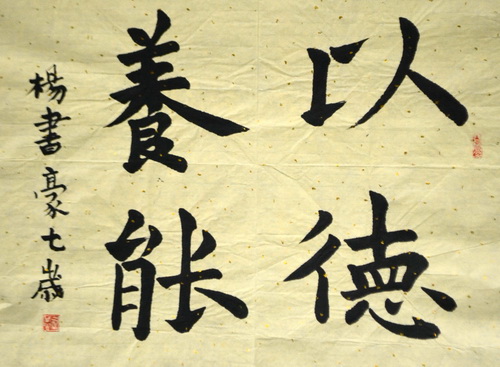 以德
養能
楊書豪七歲